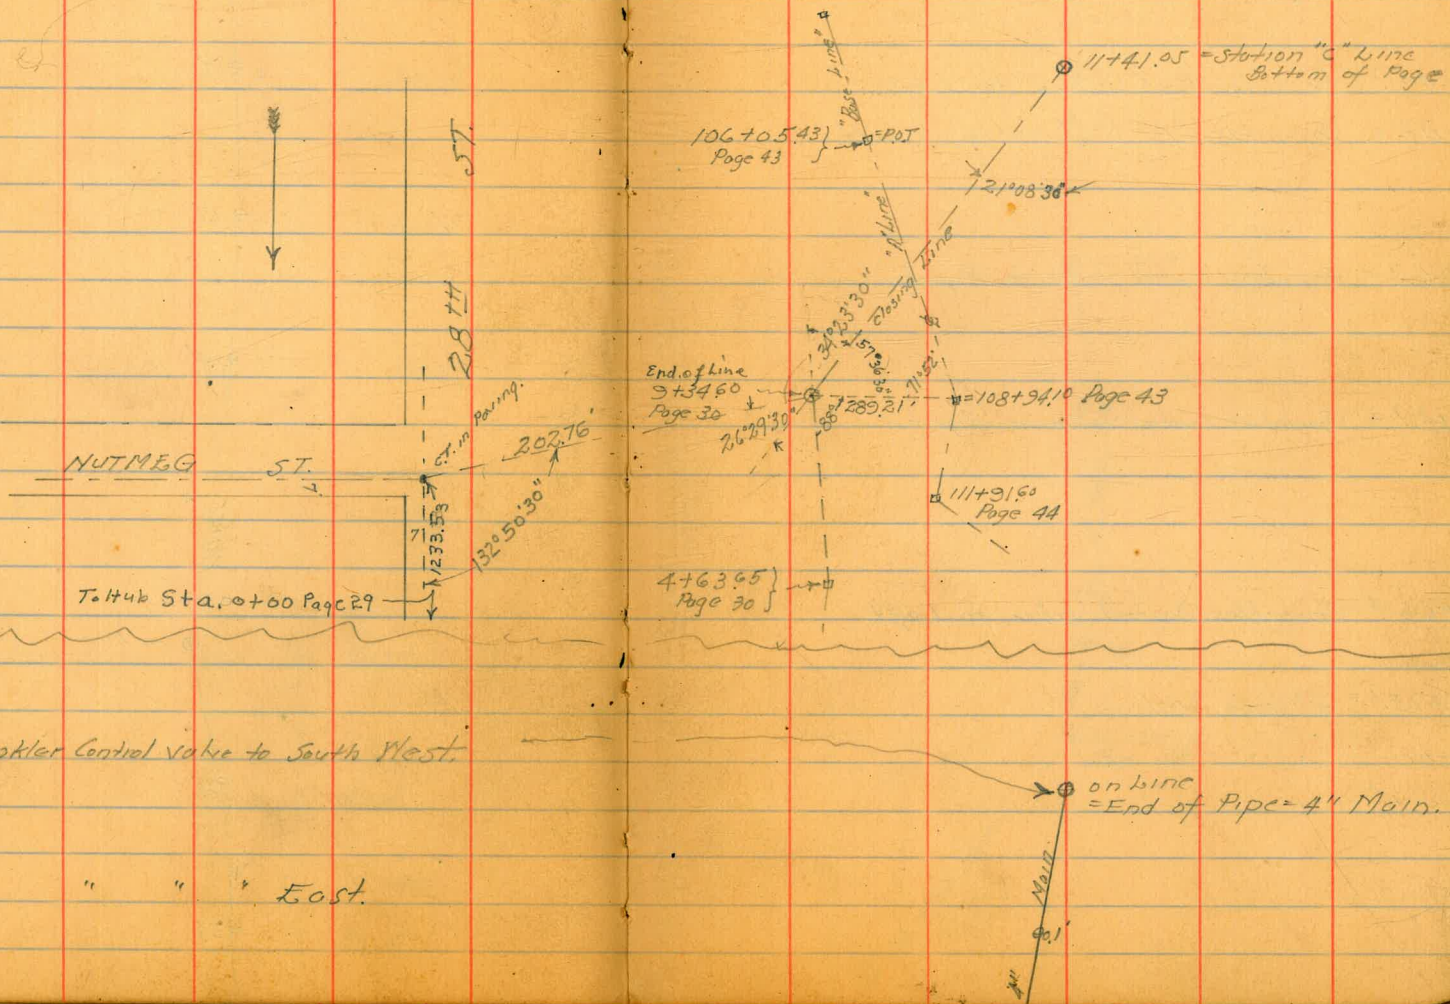 28TH ST.
NUTMEG ST.
C.T. in Paving.
202.76'
132°50'30"
1233.53
7
To Hub Sta. 0+00 Page 29
okler Control valve to South West.
" " " East.
"Base Line"
106+05.43
Page 43
=P.O.T
11+41.05 =Station "C" Line
Bottom of Page
21°08'30"
"A" Line"
Closing Line
34°23'30"
57°36'30"
71°52'
End of Line
9+34.60
Page 30
26°29'30"
88°
289.21'
=108+94.10 Page 43
111+91.60
Page 44
4+63.65
Page 30
on Line
=End of Pipe= 4" Main.
Main
4"